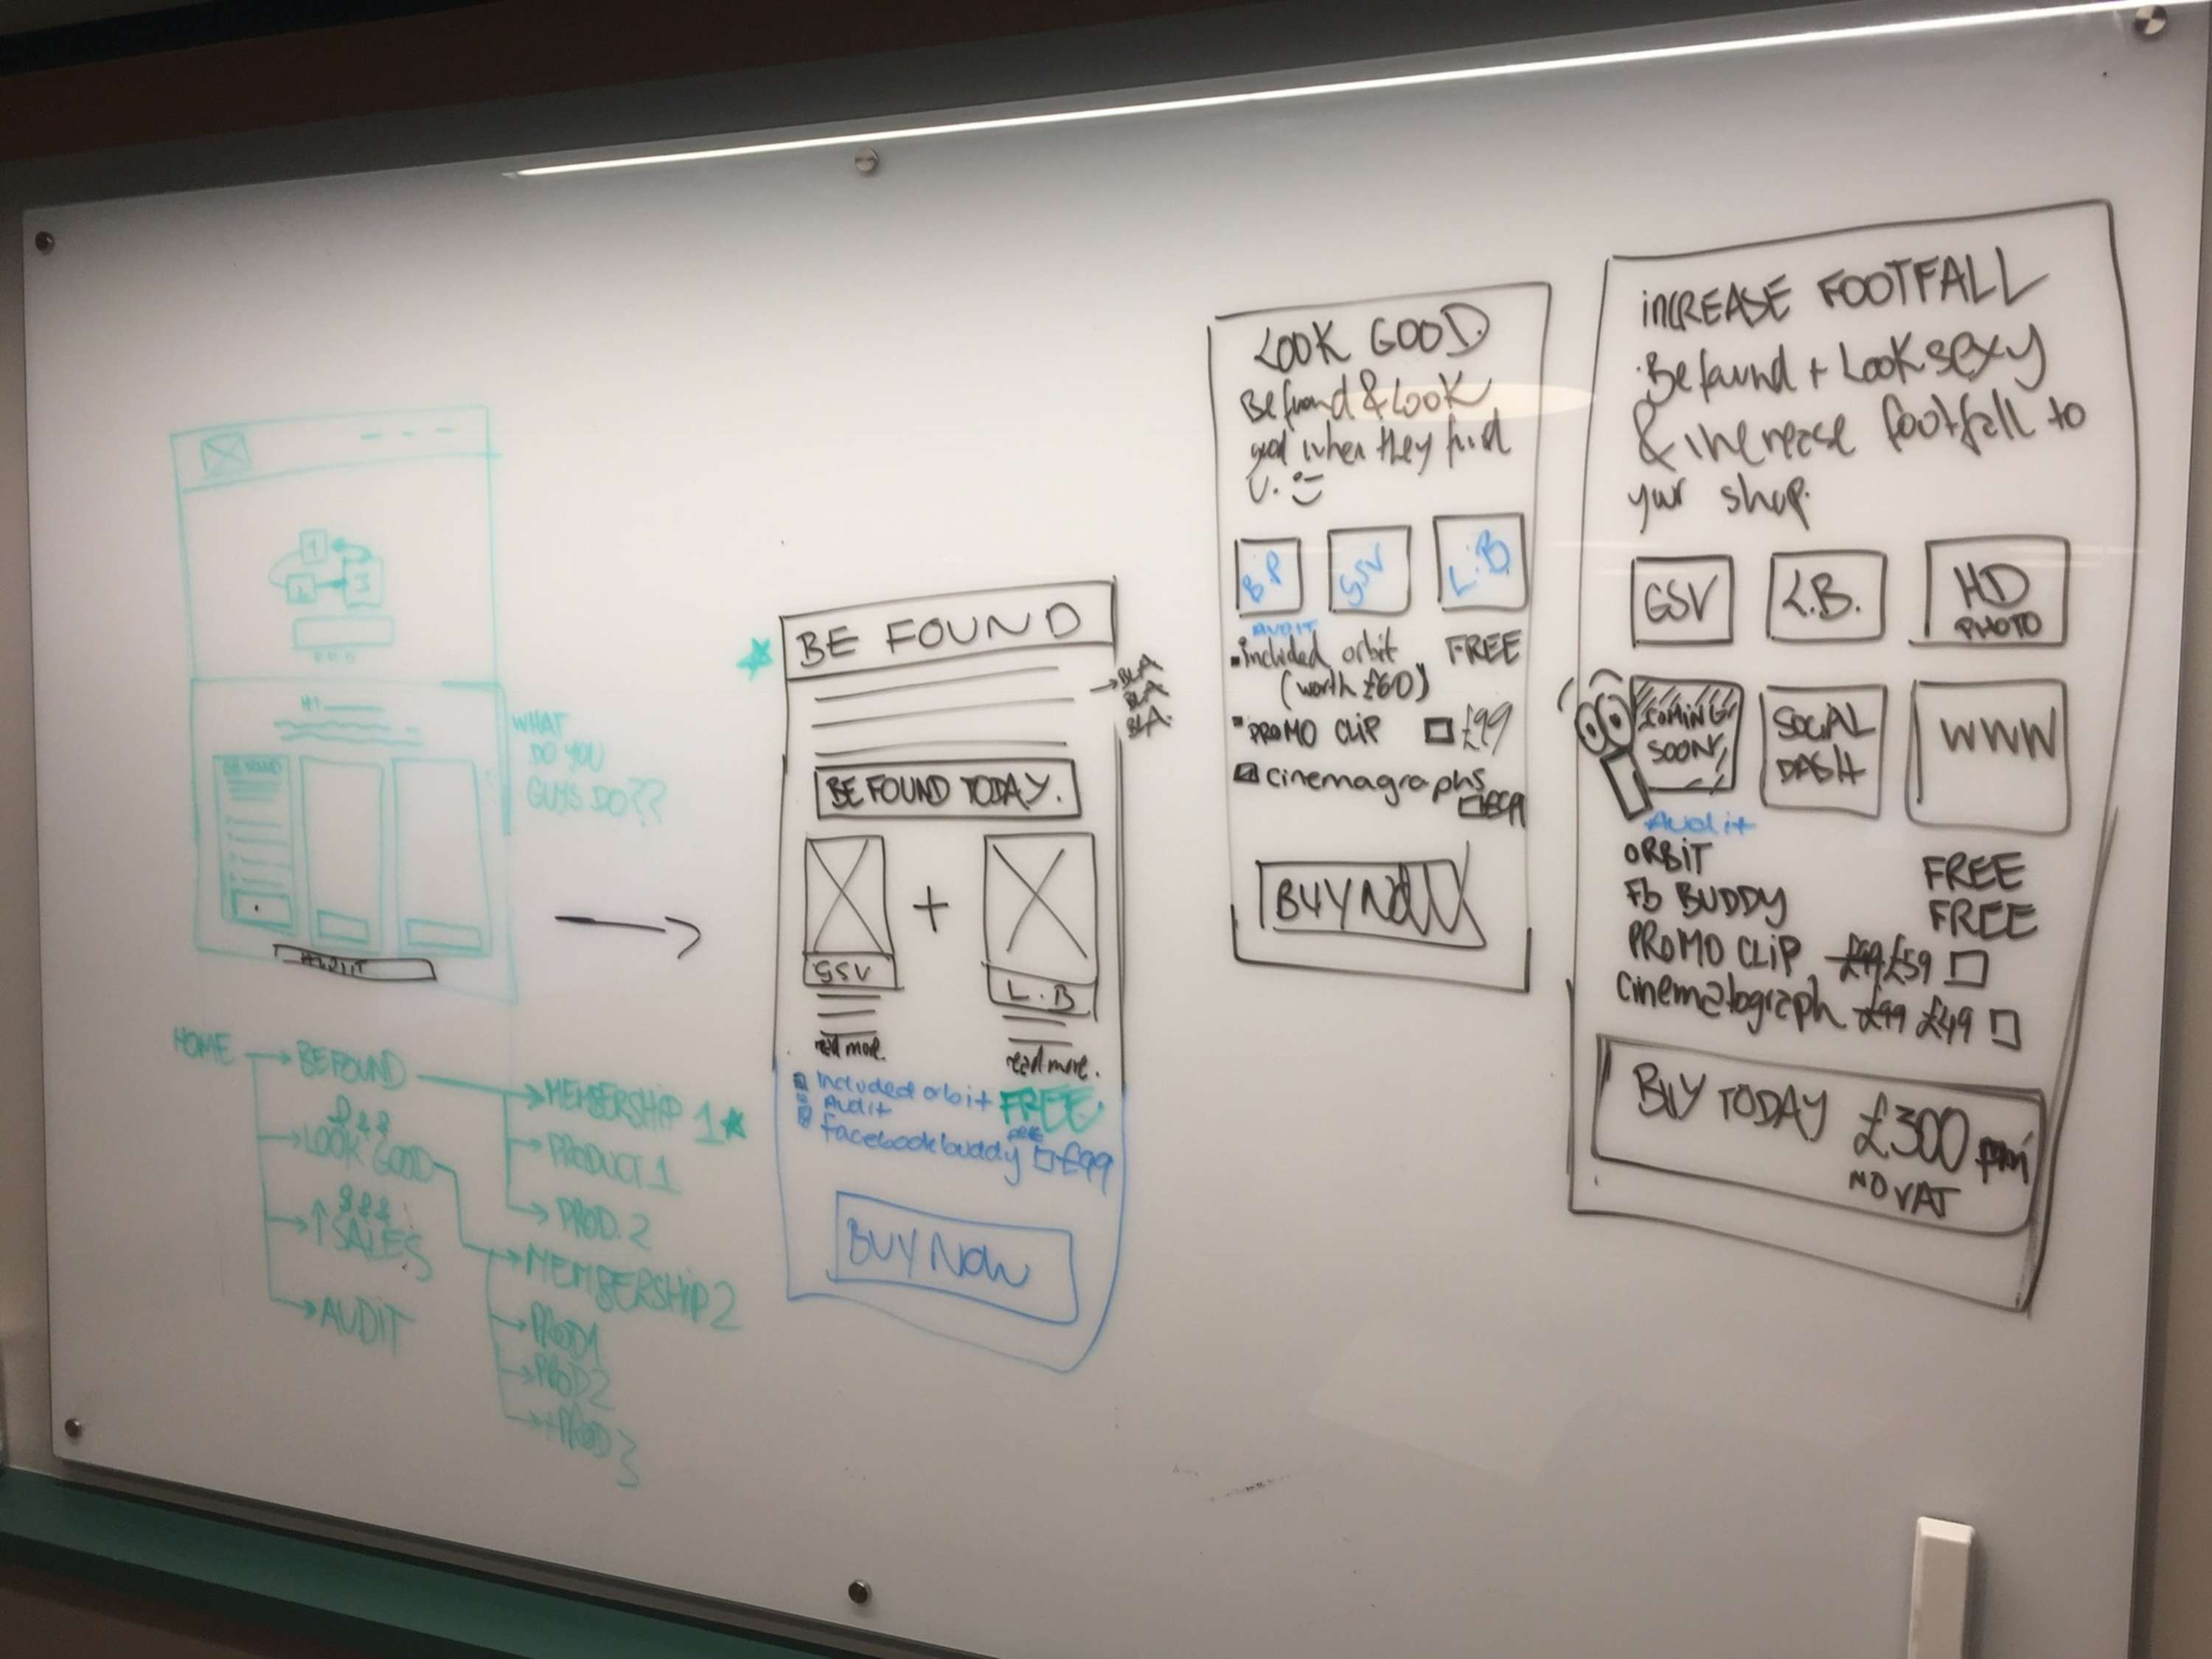 BE FOUND
WHAT
DO YOU
GUYS DO??
AUDIT
HOME
BE FOUND
LOOK GOOD
↑ SALES
AUDIT
MEMBERSHIP 1
PRODUCT 1
PROD. 2
MEMBERSHIP 2
PROD1
PROD2
PROD3
BE FOUND
BLA
BLA
BLA.
BE FOUND TODAY.
+
GSV
L.B
read more.
read more.
included orbit FREE
Audit
facebook buddy FREE £99
BUY NOW
LOOK GOOD.
Be found & look
good when they find
U. :)
BP GSV L.B
AUDIT
included orbit FREE
(worth £60)
PROMO CLIP £99
cinemagraphs
£99
BUY NOW
iNCREASE FOOTFALL
Be found + Look sexy
& increase footfall to
your shop.
GSV L.B. HD
PHOTO
COMING
SOON
SOCIAL
DASH
WWW
Audit
ORBIT FREE
Fb BUDDY FREE
PROMO CLIP £99 £59
cinematograph £99 £49
BUY TODAY £300 pm
NO VAT